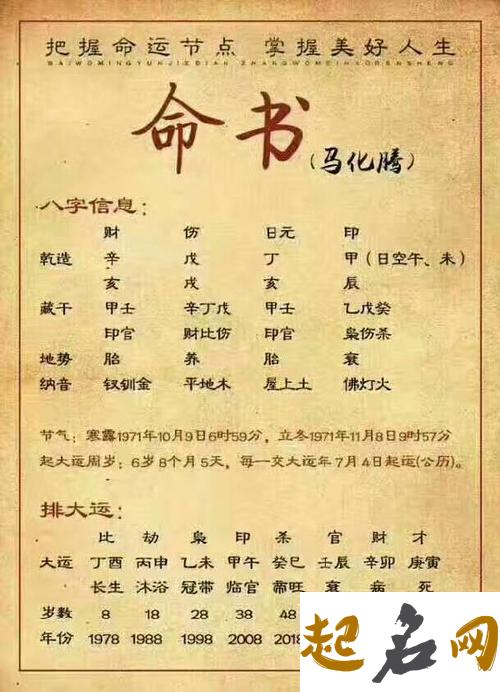 把握命运节点 掌握美好人生
BAIWOMINGYUNJIEDIAN ZHANGWOMEIHAORENSHENG
命书(马化腾)
八字信息:
财 伤 日元 印
乾造 辛 戊 丁 甲(日空午、未)
亥 戌 亥 辰
藏干 甲壬 辛丁戊 甲壬 乙戊癸
印官 财比伤 印官 枭伤杀
地势 胎 养 胎 衰
纳音 钗钏金 平地木 屋上土 佛灯火
节气:寒露1971年10月9日6时59分,立冬1971年11月8日9时57分
起大运周岁:6岁8个月5天,每一交大运年7月4日起运(公历)。
排大运:
比 劫 枭 印 杀 官 财 才
大运 丁酉 丙申 乙未 甲午 癸巳 壬辰 辛卯 庚寅
长生 沐浴 冠带 临官 帝旺 衰 病 死
岁数 8 18 28 38 48
年份 1978 1988 1998 2008 2018
起名网